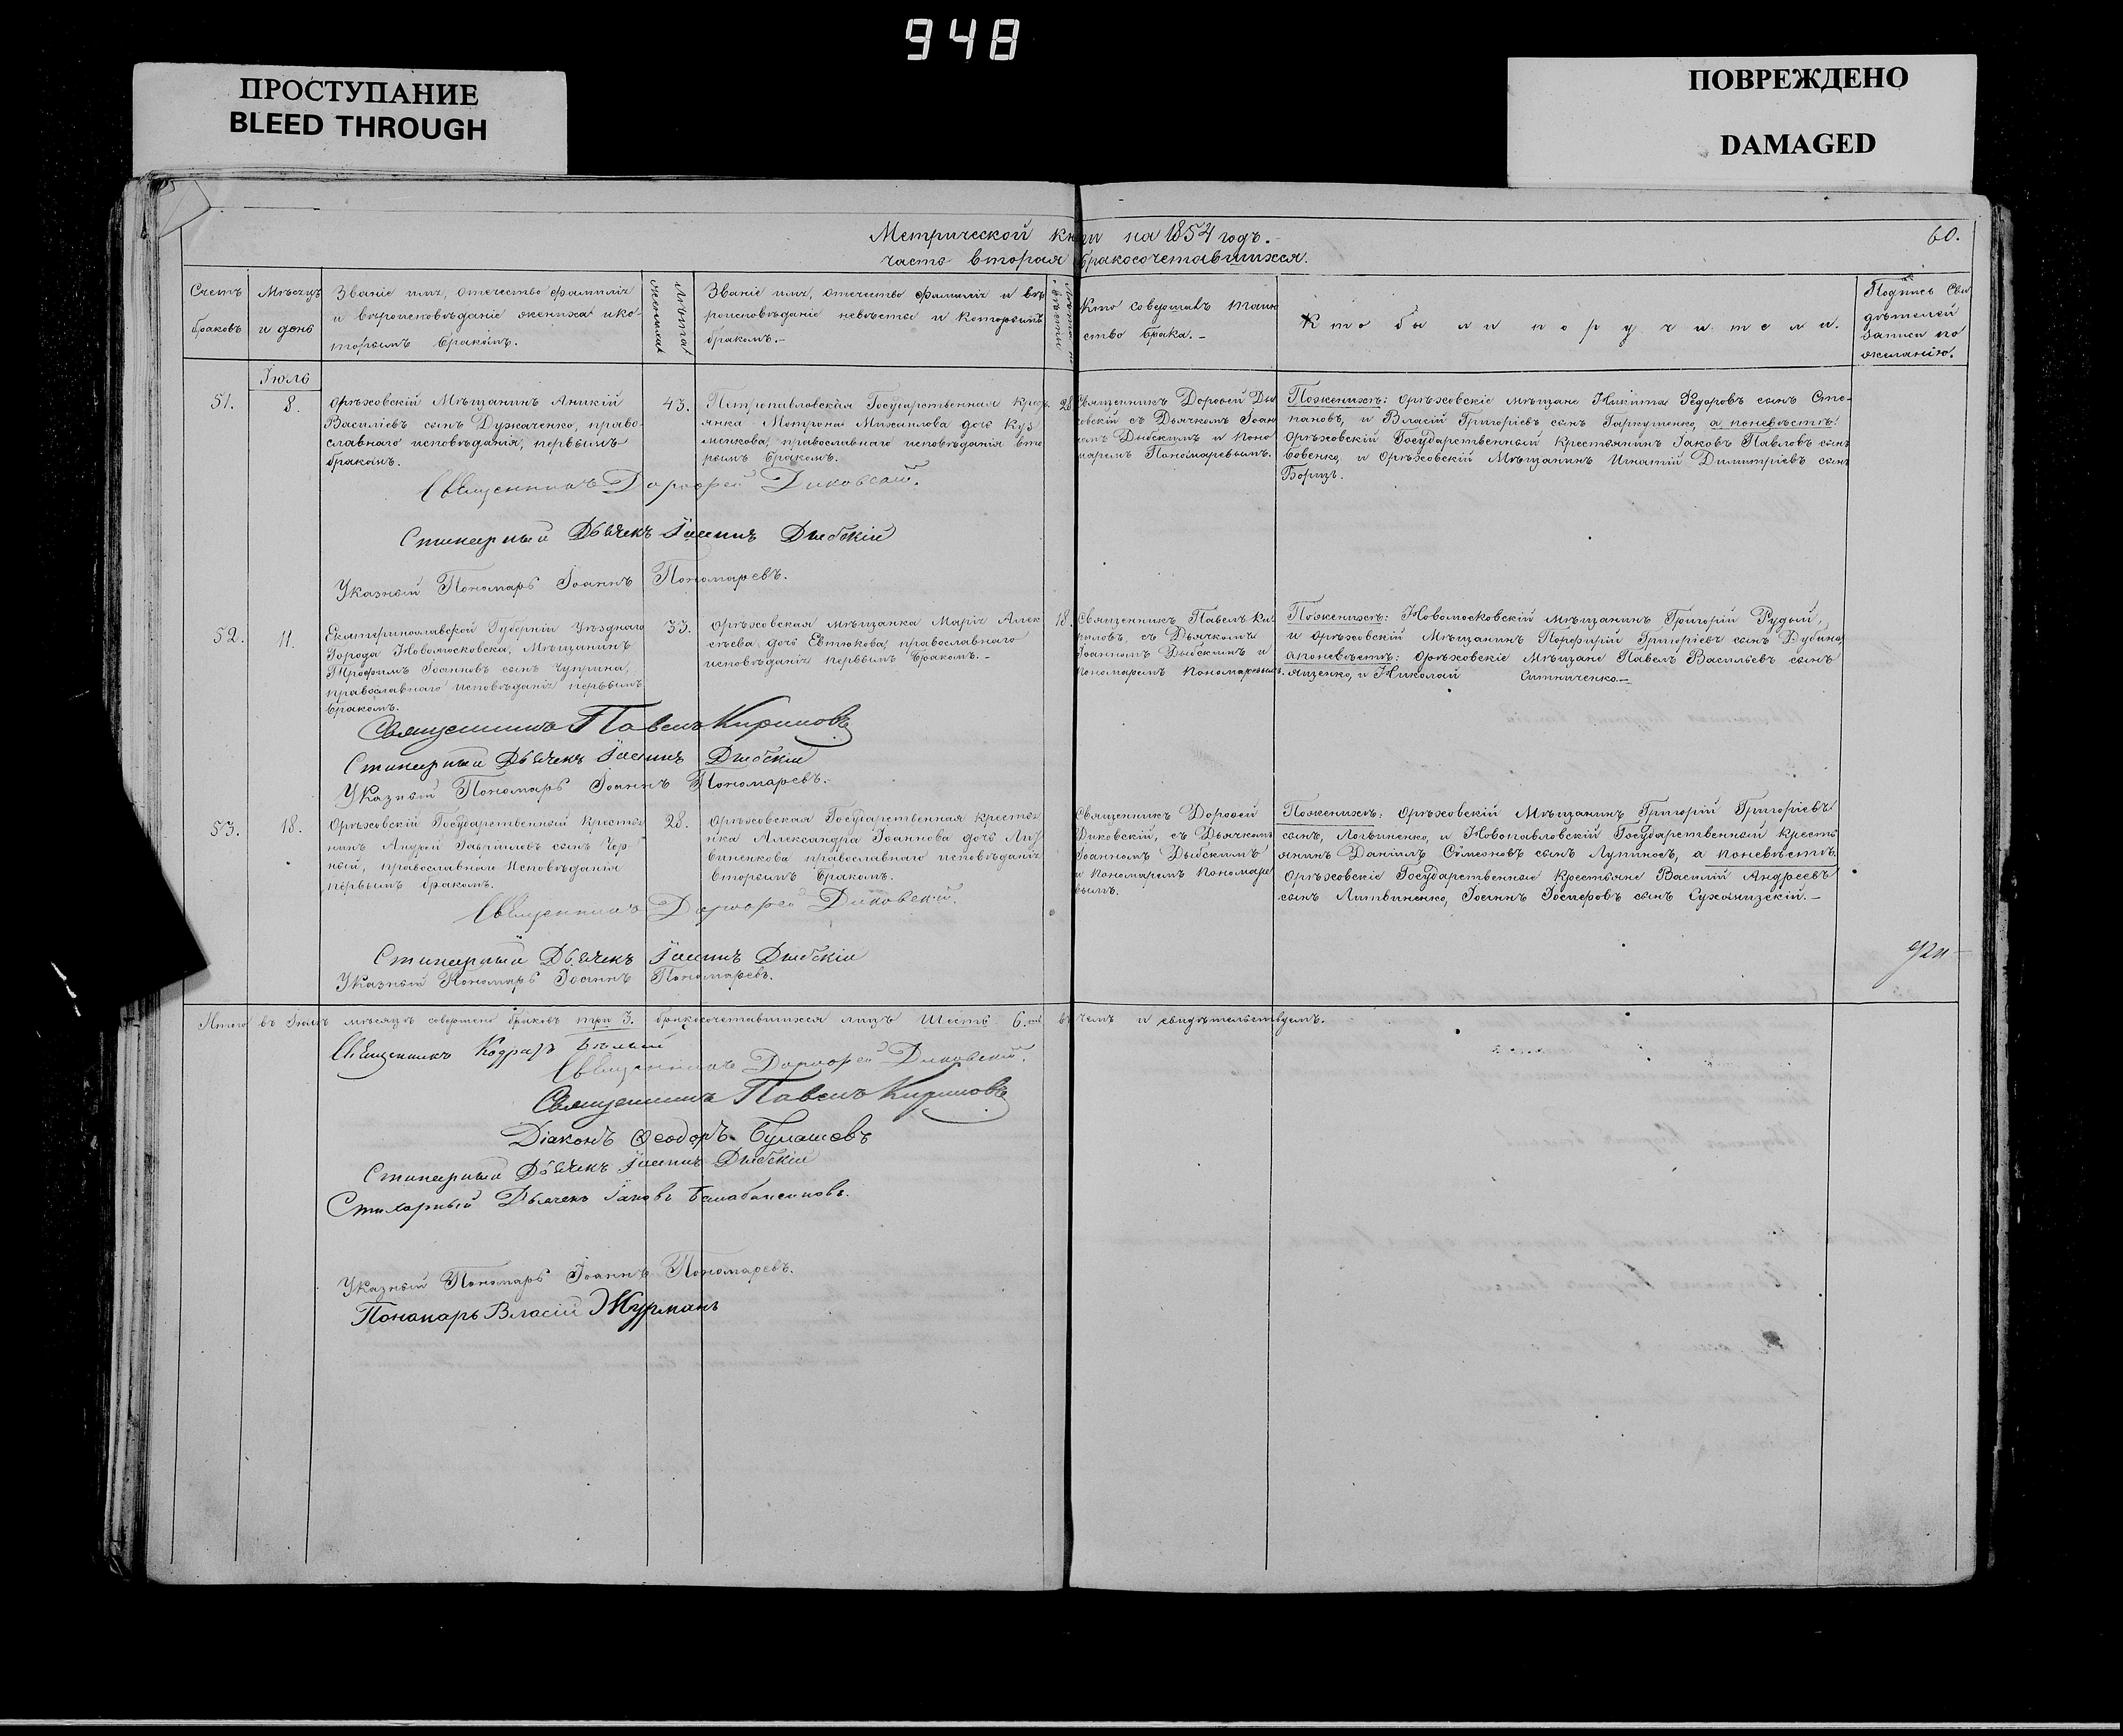 948
ПРОСТУПАНИЕ
BLEED THROUGH
ПОВРЕЖДЕНО
DAMAGED
Метрической книги на 1854 годъ.
60.
часть вторая бракосочетавшихся.
Счетъ браковъ
Мѣсяцъ и день
Званіе имя, отечество фамилія
и вѣроисповѣданіе жениха и ко-
торымъ бракомъ.
Лѣта жениха
Званіе имя, отечество фамилія и вѣ
роисповѣданіе невѣсты и которымъ
бракомъ.-
Кто совершалъ таин
ство брака.-
Кто были поручители.
Подпись Сви
дѣтелей
записи по
желанію.
Іюль
51.
8.
Орѣховскій Мѣщанинъ Аникій
Василіевъ сынъ Дужаченко, право-
славнаго исповѣданія, первымъ
бракомъ.
43.
Петропавловская Государственная крест
янка Матрона Михаилова дочь Куз
менкова, православнаго исповѣданія вто
рымъ бракомъ.
28
Священникъ Дорофей Ди
ковскій съ Дьячкомъ Іоан
номъ Дыбскимъ и Поно
маремъ Пономаревымъ.
Поженихѣ: Орѣховскіе мѣщане Никита Ѳедоровъ сынъ Сте-
пановъ, и Власій Григоріевъ сынъ Гаркушенко, а поневѣстѣ:
Орѣховскій Государственный крестьянинъ Іаковъ Павловъ сынъ
Вовенко, и Орѣховскій Мѣщанинъ Игнатій Димитріевъ сынъ
Борищъ.
Священникъ Дорофей Диковскій.
Стихарный Дьячекъ Іоаннъ Дыбскій
Указный Пономарь Іоаннъ Пономаревъ.
52.
11.
Екатеринославской Губерніи Уѣзднаго
Города Новомосковска, Мѣщанинъ
Трофимъ Іоанновъ сынъ Чуприна,
православнаго исповѣданія первымъ
бракомъ.
33.
Орѣховская мѣщанка Марія Алек
сѣева дочь Евтюкова, православнаго
исповѣданія первымъ бракомъ.-
18.
Священникъ Павелъ Ки
риловъ, съ Дьячкомъ
Іоанномъ Дыбскимъ и
Пономаремъ Пономаревымъ.
Поженихѣ: Новомосковскій мѣщанинъ Григорій Рудый,
и Орѣховскій Мѣщанинъ Порфирій Григоріевъ сынъ Дубина,
апоневѣстѣ: Орѣховскіе Мѣщане Павелъ Васильевъ сынъ
Яценко, и Николай Ситниченко.-
Священникъ Павелъ Кириловъ
Стихарный Дьячекъ Іоаннъ Дыбскій
Указный Пономарь Іоаннъ Пономаревъ.
53.
18.
Орѣховскій Государственный крестья
нинъ Андрей Гавриловъ сынъ Чер-
ный, православнаго Исповѣданія
первымъ бракомъ.
28.
Орѣховская Государственная крестья
нка Александра Іоаннова дочь Лит
виненкова православнаго исповѣданія
вторымъ бракомъ.
Священникъ Дорофей
Диковскій, съ Дьячкомъ
Іоанномъ Дыбскимъ
и Пономаремъ Понома
ревымъ.
Поженихѣ: Орѣховскій Мѣщанинъ Григорій Григоріевъ
сынъ, Логвиненко, и Новопавловскій Государственный кресть
янинъ Даніилъ Сѵмеоновъ сынъ Лупиносъ, а поневѣстѣ
Орѣховскіе Государственные крестьяне Василій Андреевъ
сынъ Литвиненко, Іоаннъ Іосифовъ сынъ Суханизскій.-
Священникъ Дорофей Диковскій.
Стихарный Дьячекъ Іоаннъ Дыбскій
Указный Пономарь Іоаннъ Пономаревъ.
Итого въ Іюлѣ мѣсяцѣ совершено браковъ три 3. бракосочетавшихся лицъ Шесть 6. въ чемъ и свидѣтельствуемъ.
Священникъ Кодратъ Бѣлый
Священникъ Дорофей Диковскій.
Священникъ Павелъ Кириловъ
Діаконъ Ѳеодоръ Булашевъ
Стихарный Дьячекъ Іоаннъ Дыбскій
Стихарный Дьячекъ Іаковъ Балабансиковъ.
Указный Пономарь Іоаннъ Пономаревъ.
Пономарь Власій Журманъ